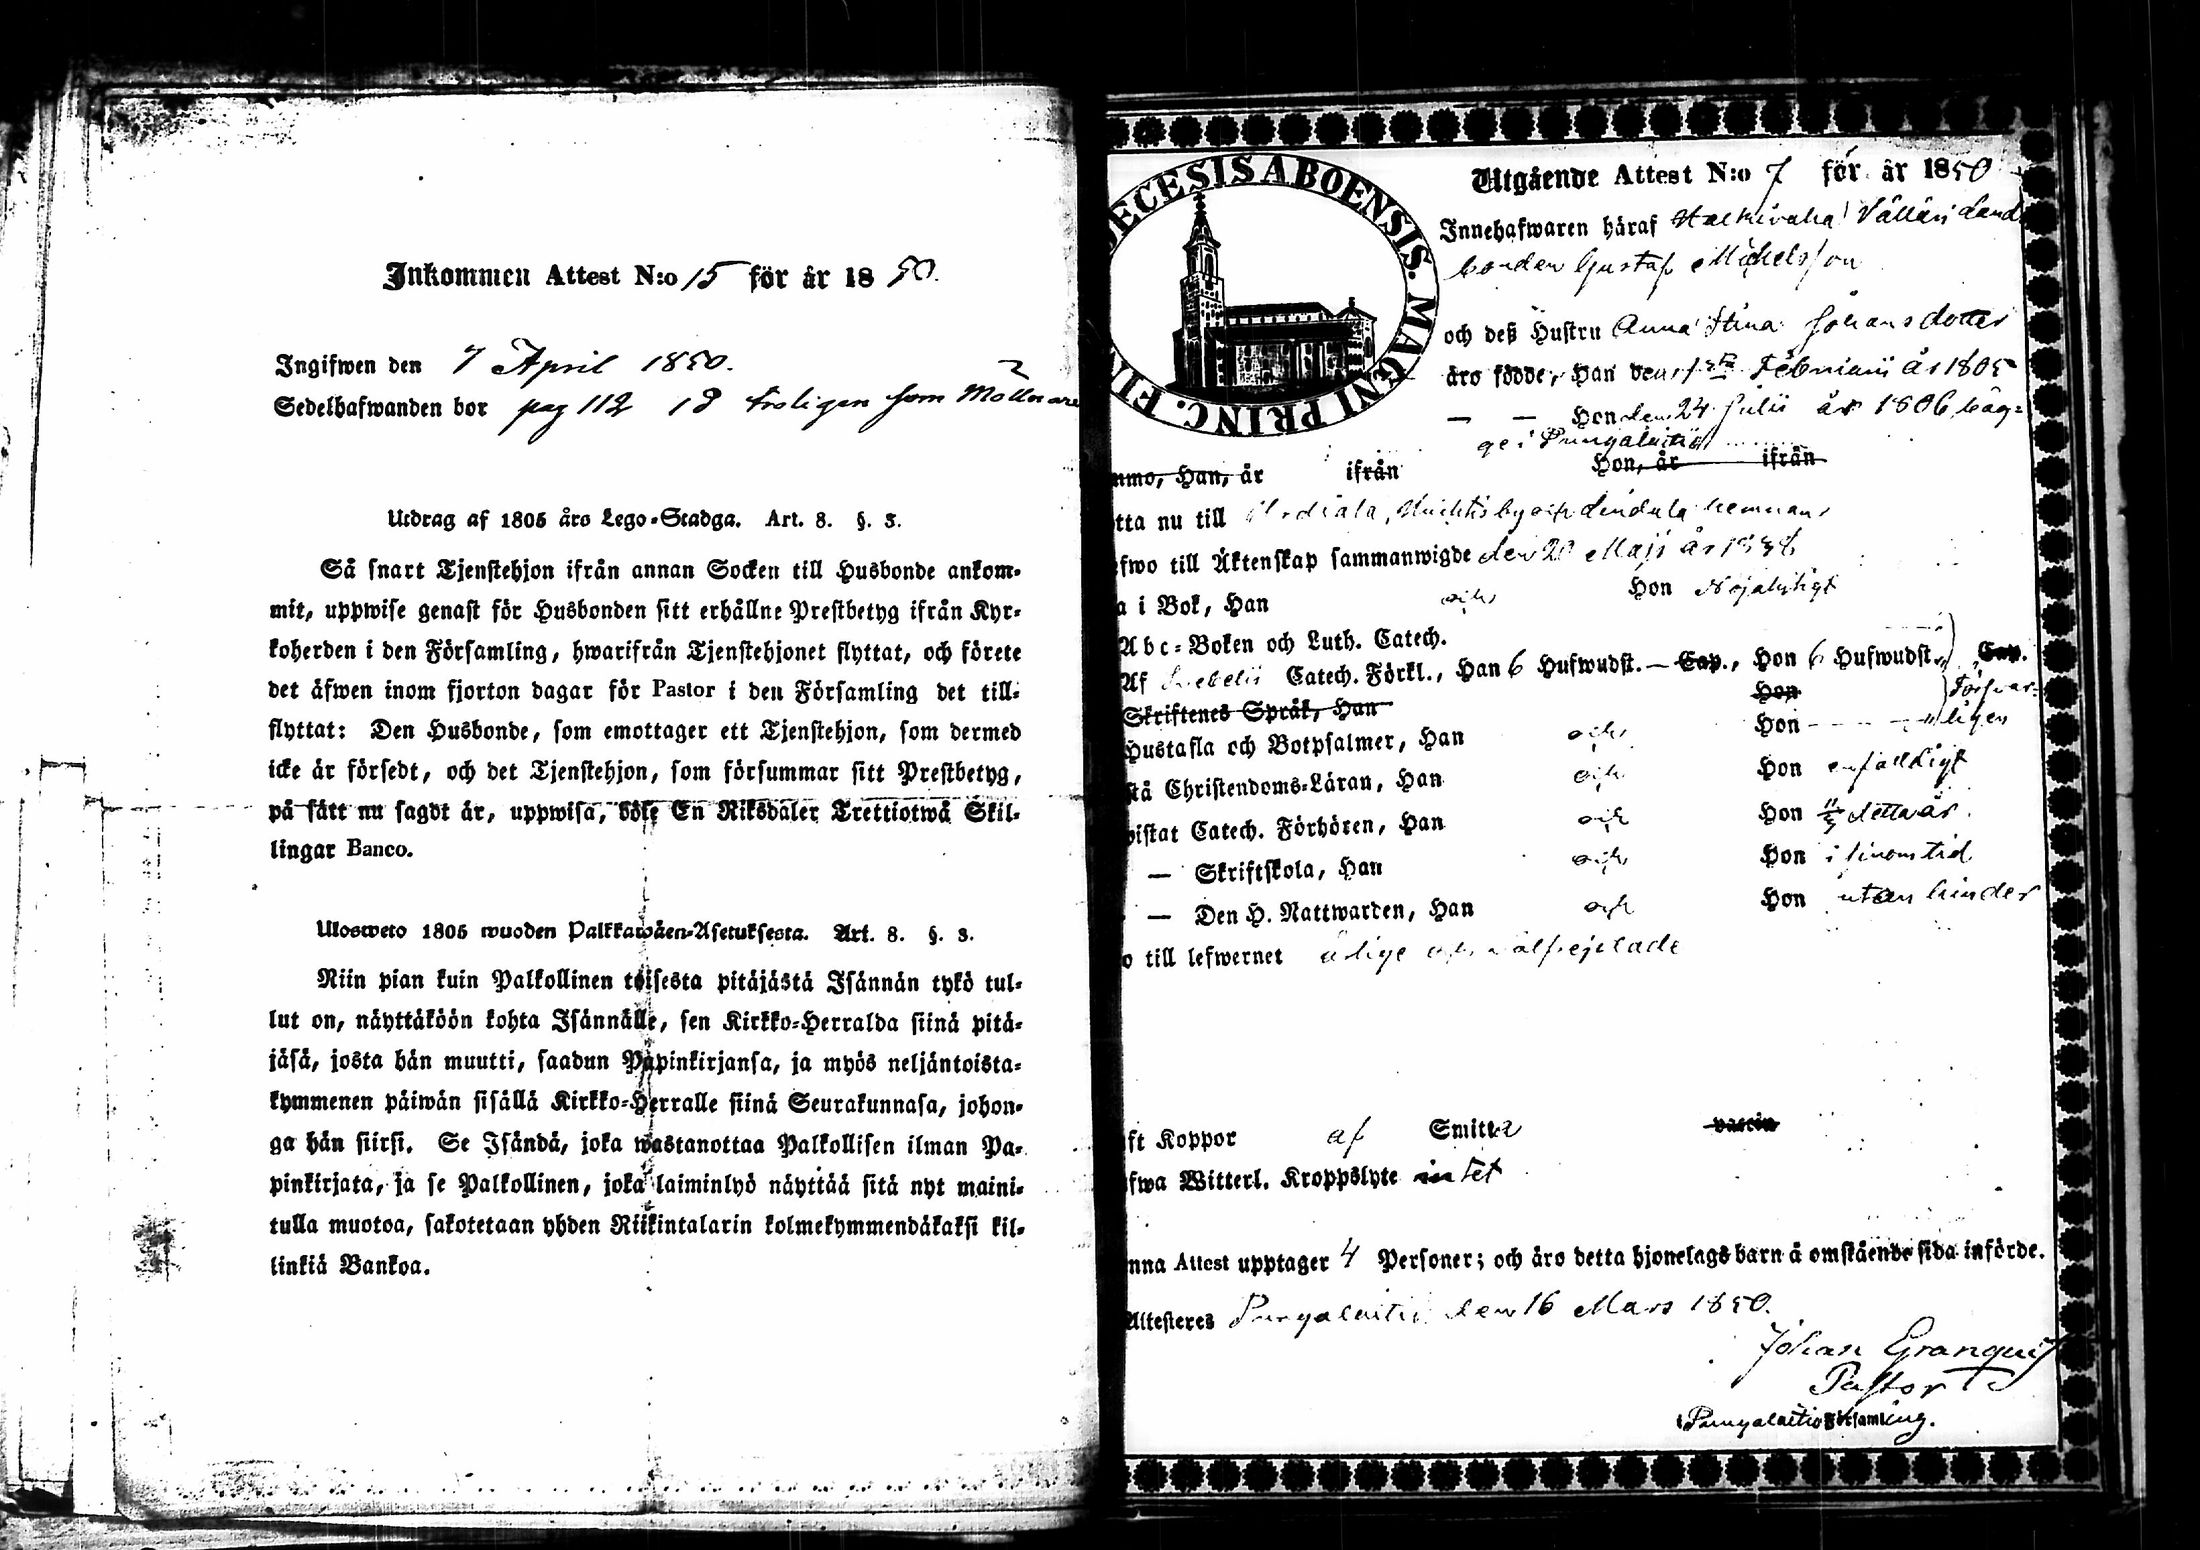 Inkommen Attest N:o 15 för år 1850.
Ingifwen den 7 April 1850.
Sedelhafwanden bor pag 112 18 troligen som Möllnare
Utdrag af 1805 års Lego-Stadga. Art. 8. §. 3.
Så snart Tjenstehjon ifrån annan Socken till Husbonde ankom-
mit, uppwise genast för Husbonden sitt erhållne Prestbetyg ifrån Kyr-
koherden i den Församling, hwarifrån Tjenstehjonet flyttat, och förete
det äfwen inom fjorton dagar för Pastor i den Församling det till-
flyttat: Den Husbonde, som emottager ett Tjenstehjon, som dermed
icke är försedt, och det Tjenstehjon, som försummar sitt Prestbetyg,
på sätt nu sagdt är, uppwisa, böte En Riksdaler Trettiotwå Skil-
lingar Banco.
Ulosweto 1805 wuoden Palkkawäen-Asetuksesta. Art. 8. §. 3.
Niin pian kuin Palkollinen toisesta pitäjästä Isännän tykö tul-
lut on, näyttäköön kohta Isännälle, sen Kirkko-Herralda siinä pitä-
jäsä, josta hän muutti, saadun Papinkirjansa, ja myös neljäntoista-
kymmenen päiwän sisällä Kirkko-Herralle siinä Seurakunnasa, johon-
ga hän siirsi. Se Isändä, joka wastanottaa Palkollisen ilman Pa-
pinkirjata, ja se Palkollinen, joka laiminlyö näyttää sitä nyt maini-
tulla muotoa, sakotetaan yhden Riikintalarin kolmekymmendäkaksi kil-
linkiä Bankoa.
ECESIS ABOENSIS. MAGNI PRINC. FIN
Utgående Attest N:o 7 för år 1850
Innehafwaren häraf Land
bonden Gustaf Michelsson
och deß Hustru Anna Stina Johansdotter
äro födde, Han den 1sta Februarii år 1805
— — Hon den 24 Julii år 1806, båg-
ge i Pungalaitio
mmo, Han, år ifrån Hon, år ifrån
tta nu till Huhtis by och hemman
fwo till Äktenskap sammanwigde den Maji år
a i Bok, Han och Hon Nöjaktigt
Abc-Boken och Luth. Catech.
Af Svebelii Catech. Förkl., Han 6 Hufwudst. — Cap., Hon 6 Hufwudst. Cap.
Skriftenes Språk, Han Hon Försvar-
Hustafla och Botpsalmer, Han och Hon ligen
stå Christendoms-Läran, Han och Hon enfaldigt
wistat Catech. Förhören, Han och Hon detta år.
— Skriftskola, Han och Hon i sinom tid
— Den H. Nattwarden, Han och Hon utan hinder
o till lefwernet ärlige och välfrejdade
ft Koppor af Smitta vaccin
fwa Witterl. Kroppslyte intet
nna Attest upptager 4 Personer; och äro detta hjonelags barn å omstående sida införde.
Attesteres Pungalaitio den 16 Mars 1850.
Johan Granquist
Pastor
i Pungalaitio Församling.